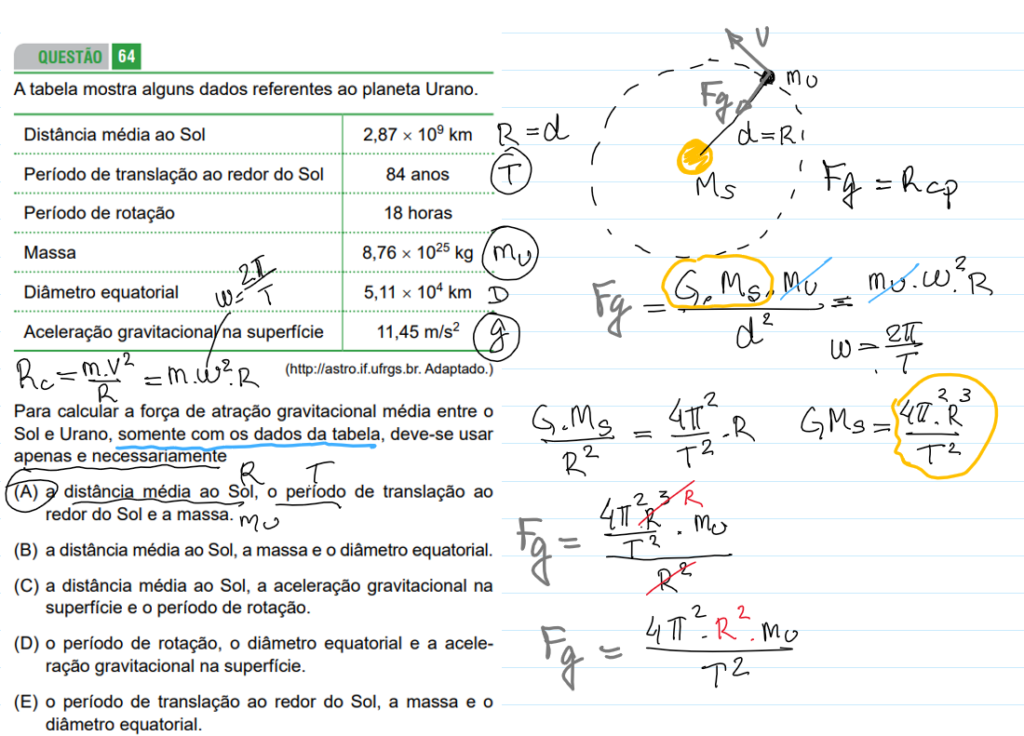 QUESTÃO 64
A tabela mostra alguns dados referentes ao planeta Urano.
Distância média ao Sol 2,87 × 10⁹ km R = d
Período de translação ao redor do Sol 84 anos T
Período de rotação 18 horas
Massa 8,76 × 10²⁵ kg mU
Diâmetro equatorial 5,11 × 10⁴ km D
W = 2π/T
Aceleração gravitacional na superfície 11,45 m/s² g
Rc = m.V²/R = m.W².R
(http://astro.if.ufrgs.br. Adaptado.)
Para calcular a força de atração gravitacional média entre o
Sol e Urano, somente com os dados da tabela, deve-se usar
apenas e necessariamente
R T
(A) a distância média ao Sol, o período de translação ao
redor do Sol e a massa. mU
(B) a distância média ao Sol, a massa e o diâmetro equatorial.
(C) a distância média ao Sol, a aceleração gravitacional na
superfície e o período de rotação.
(D) o período de rotação, o diâmetro equatorial e a acele-
ração gravitacional na superfície.
(E) o período de translação ao redor do Sol, a massa e o
diâmetro equatorial.
V
mU
Fg
d=R
MS
Fg = Rcp
Fg = G.MS.MU/d² = mU.W².R
W = 2π/T
G.MS/R² = 4π²/T².R
GMS = 4π².R³/T²
Fg = 4π².R³/T² . mU / R²
R
Fg = 4π².R².mU/T²